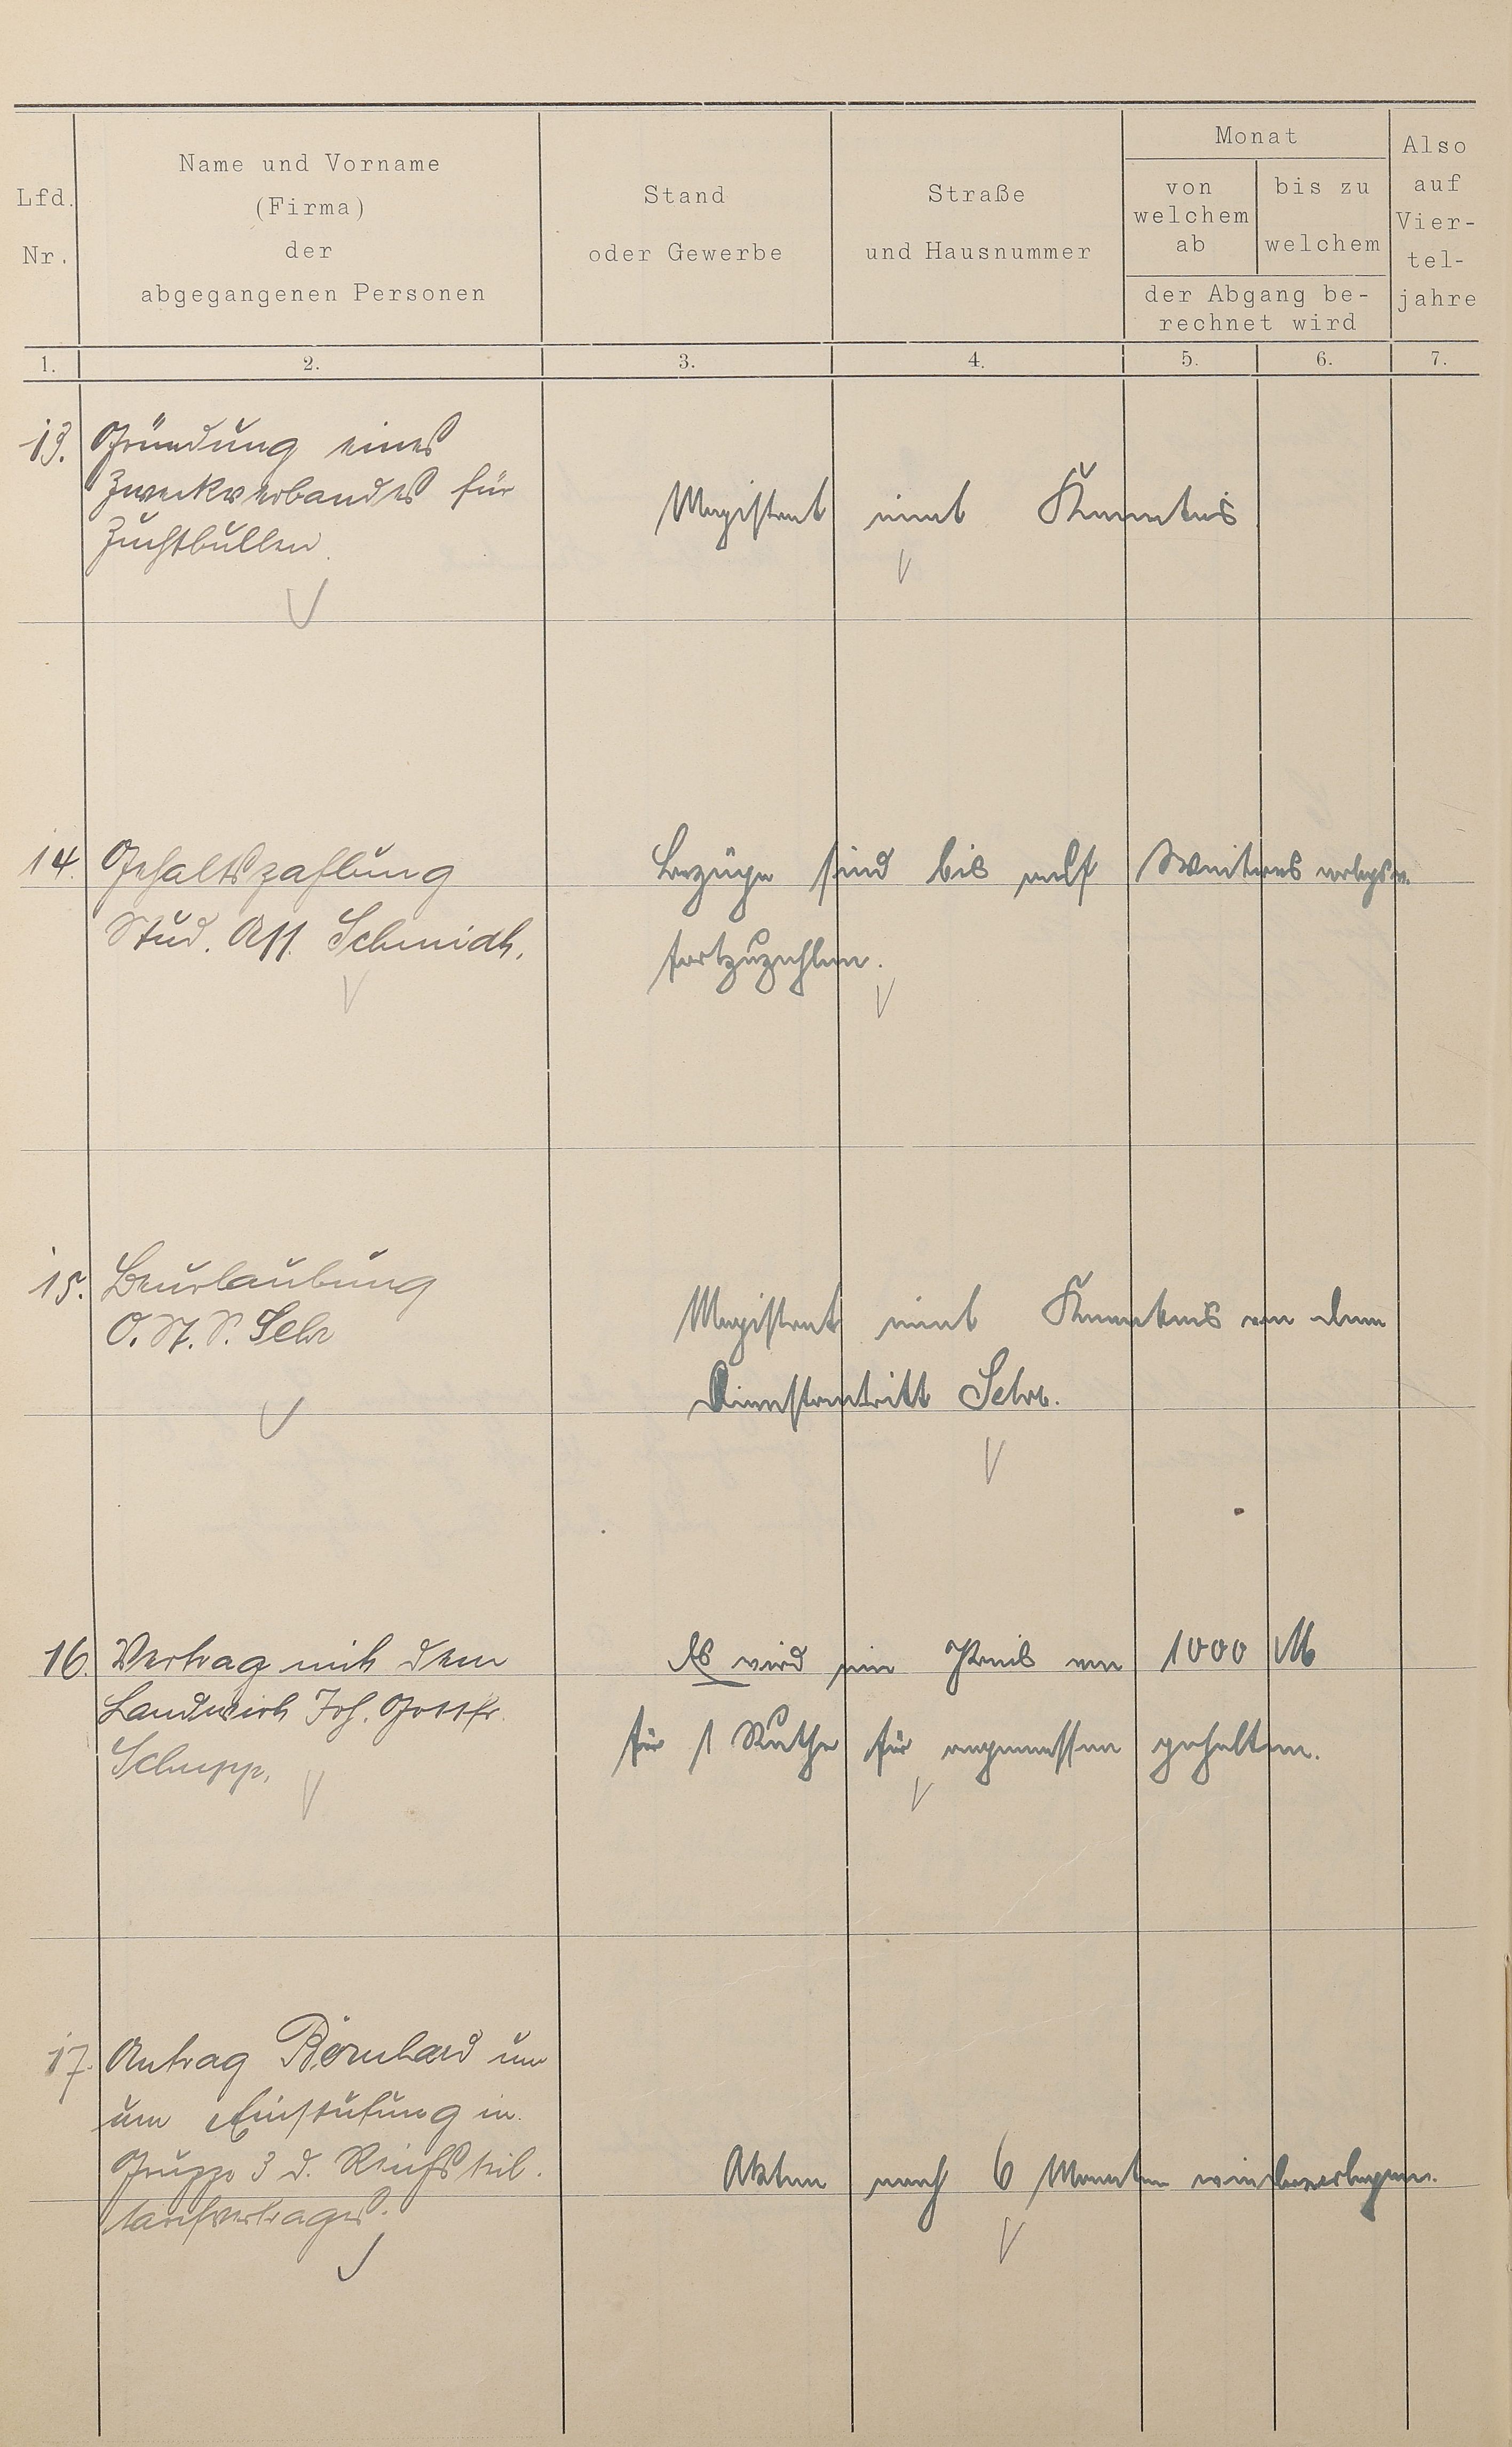 Lfd. Nr.
Name und Vorname
(Firma)
der
abgegangenen Personen
Stand
oder Gewerbe
Straße
und Hausnummer
Monat
von welchem ab
bis zu welchem
der Abgang be-
rechnet wird
Also auf Vier-tel-jahre
1. 2. 3. 4. 5. 6. 7.
13. Gründung eines
Zweckverbandes für
Zuchtbullen.
Magistrat nimt Kenntnis
14. Gehaltszahlung
Stud. Ass. Schmidt.
Bezüge sind bis auf Weiteres
fortzuzahlen.
15. Beurlaubung
O. St. S. Sehr
Magistrat nimt Kenntnis von dem
Dienstantritt Sehr.
16. Vertrag mit dem
Landwirth Joh. Gottfr.
Schupp.
Es wird ein Preis von 1000 M
für 1 Ruthe für angemessen gehalten.
17. Antrag Bernhard um
um Einstufung in
Gruppe 3 d. Reichs
tarifvertrages.
Akten nach 6 Monaten wiedervorlegen.